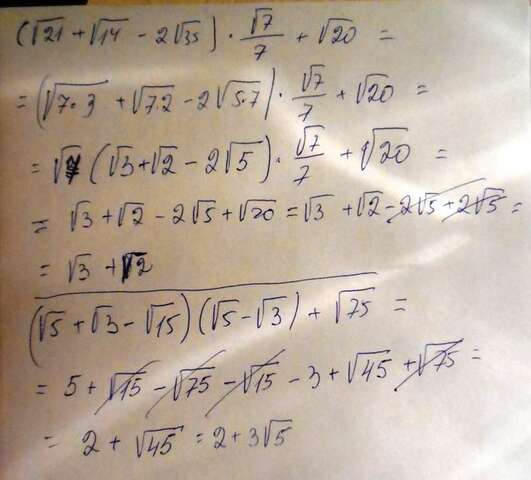 (√21 + √14 - 2√35) · √7/7 + √20 =
= (√7·3 + √7·2 - 2√5·7) · √7/7 + √20 =
= √7 (√3 + √2 - 2√5) · √7/7 + √20 =
= √3 + √2 - 2√5 + √20 = √3 + √2 - 2√5 + 2√5 =
= √3 + √2
(√5 + √3 - √15)(√5 - √3) + √75 =
= 5 + √15 - √75 - √15 - 3 + √45 + √75 =
= 2 + √45 = 2 + 3√5